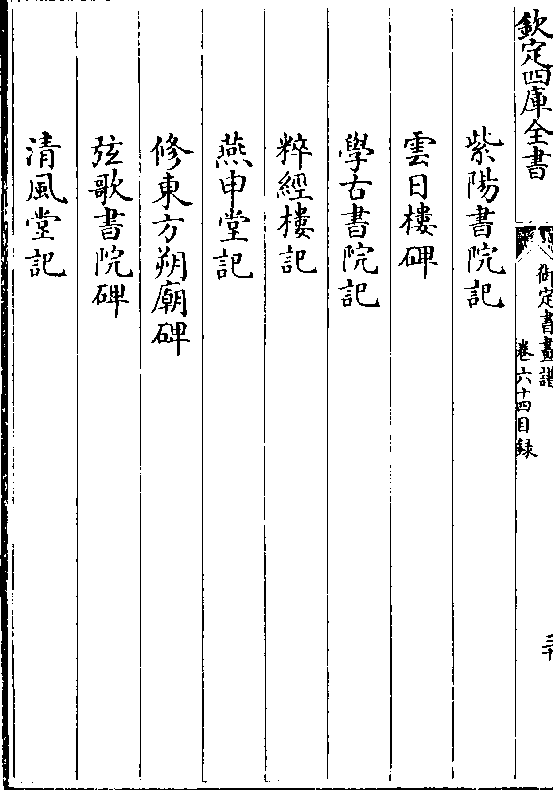 欽定四庫全書
御定書畫譜
卷六十四目録
紫陽書院記
雲日樓碑
學古書院記
粹經樓記
燕申堂記
修東方朔廟碑
弦歌書院碑
清風堂記